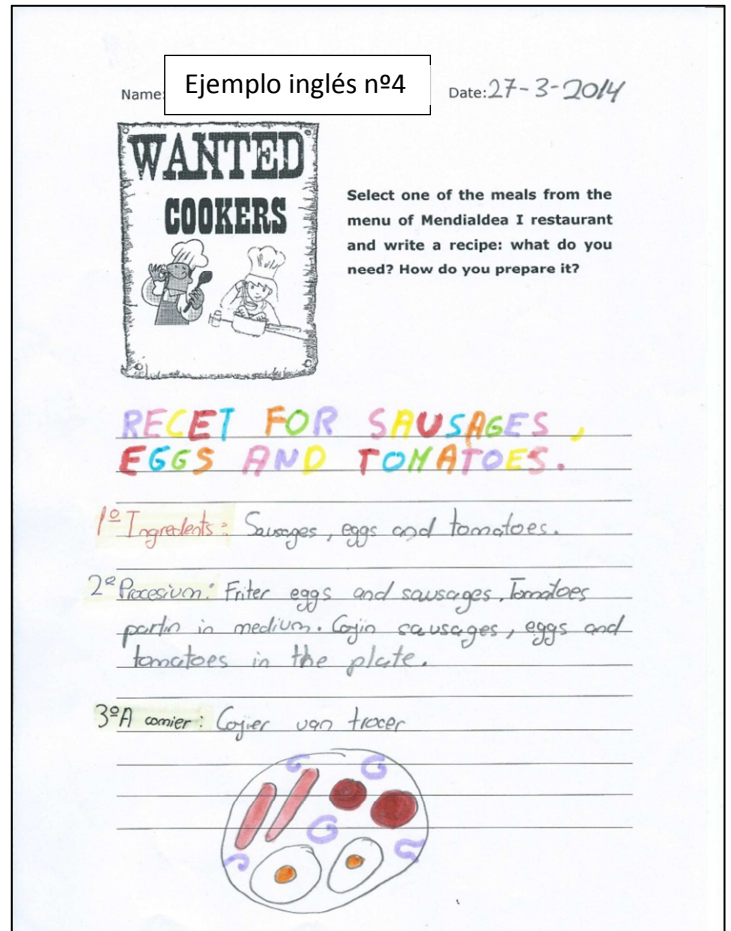 Ejemplo inglés nº4
Name:
Date: 27-3-2014
WANTED
COOKERS
Select one of the meals from the
menu of Mendialdea I restaurant
and write a recipe: what do you
need? How do you prepare it?
RECET FOR SAUSAGES,
EGGS AND TOMATOES.
1º Ingredents: Sausages, eggs and tomatoes.
2º Procesium: Friter eggs and sausages. Tomatoes
partin in medium. Cojin sausages, eggs and
tomatoes in the plate.
3º A comier: Cojier van trocer